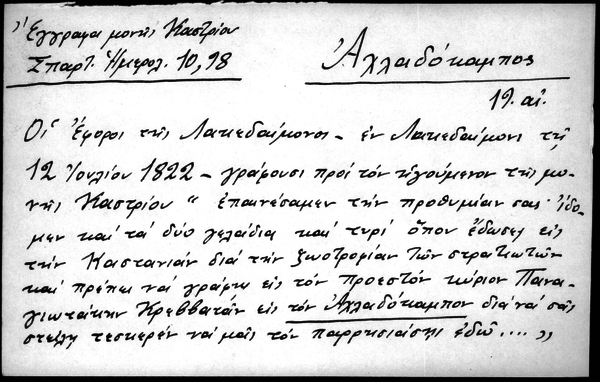 Ἔγγραφα μονῆς Καστρίου
Σπαρτ. Ἡμερολ. 10, 98
Ἀχλαδόκαμπος
19. αἰ.
Οἱ Ἔφοροι τῆς Λακεδαίμονος – ἐν Λακεδαίμονι τῇ
12 Ἰουλίου 1822 – γράφουσι πρὸς τὸν ἡγούμενον τῆς μο-
νῆς Καστρίου " ἐπαινέσαμεν τὴν προθυμίαν σας· ἴδο-
μεν καὶ τὰ δύο γελάδια καὶ τυρί ὅπου ἔδωσες εἰς
τὴν Καστανιάν διὰ τὴν ζωοτροφίαν τῶν στρατιωτῶν
καὶ πρέπει νὰ γράψω εἰς τὸν προεστόν κύριον Πανα-
γιωτάκην Κρεββατᾶν εἰς τὸν Ἀχλαδόκαμπον διὰ νὰ σᾶς
στείλῃ τεσκερέν νὰ μᾶς τὸν παρρησιάσῃς ἐδῶ .... "